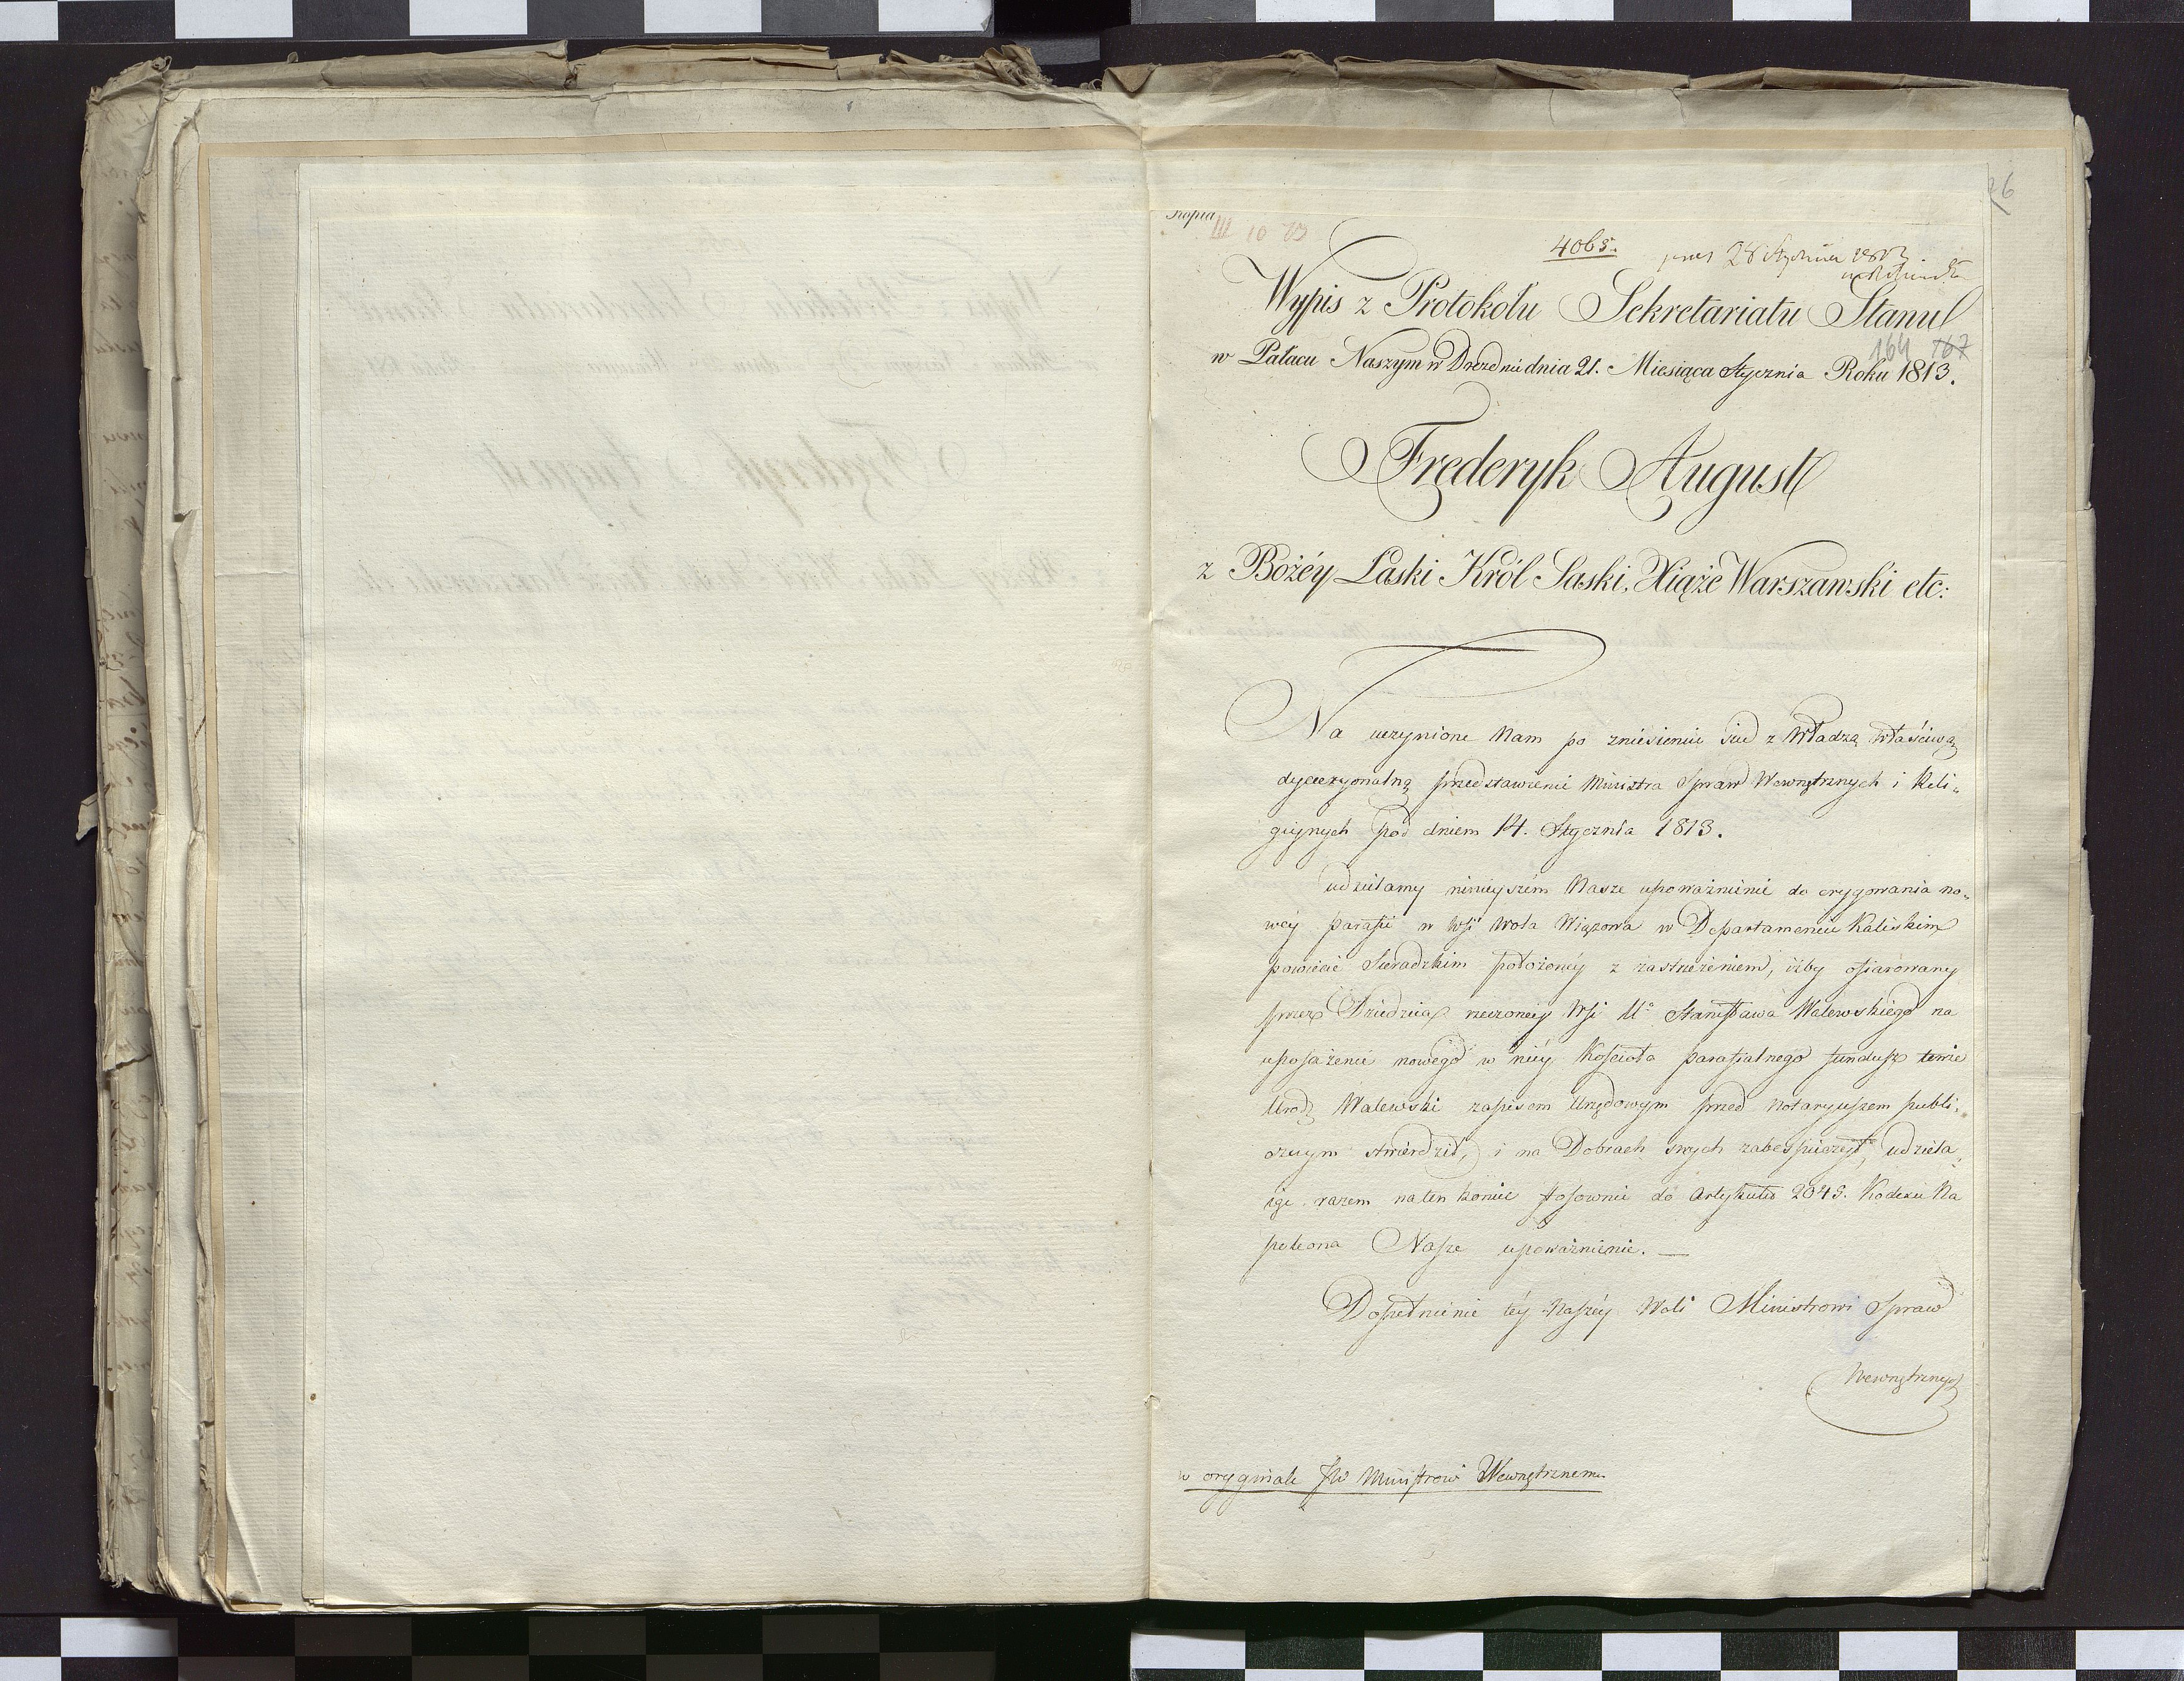 26
Kopia
III 10 73
4065. pres 28 Stycznia 1813
Wypis z Protokołu Sekretariatu Stanu
164 167
w Pałacu Naszym w Dreźnie dnia 21. Miesiąca Stycznia Roku 1813.
Fręderyk August
z Bożéy Łaski Król Saski, Xiąże Warszawski etc:
Na uczynione Nam po zniesieniu się z Władzą właściwą
dyecezyonalną przedstawienie Ministra Spraw Wewnętrznych i Reli-
giynych pod dniem 14. Stycznia 1813.
udzielamy ninieyszém Nasze upoważnienie do erygowania no-
wéy parafii w wsi Wola Wiązowa w Departamencie Kaliskim
powiecie Sieradzkim położonéy z zastrzeżeniem, iżby ofiarowany
przez Dziedzica rzeczonéy Wsi Uo Stanisława Walewskiego na
uposażenie nowego w niéy Kościoła parafialnego fundusz tenże
Urodz Walewski zapisem Urzędowym przed Notaryuszem publi-
cznym stwierdził, i na Dobrach swych zabespieczył, udziela-
iąc razem na ten koniec stosownie do Artykułu 2045. Kodexu Na
poleona Nasze upoważnienie. —
Dopełnienie téy Naszéy Woli Ministrowi Spraw
Wewnętrznych
w oryginale JW Ministrowi Wewnętrznemu